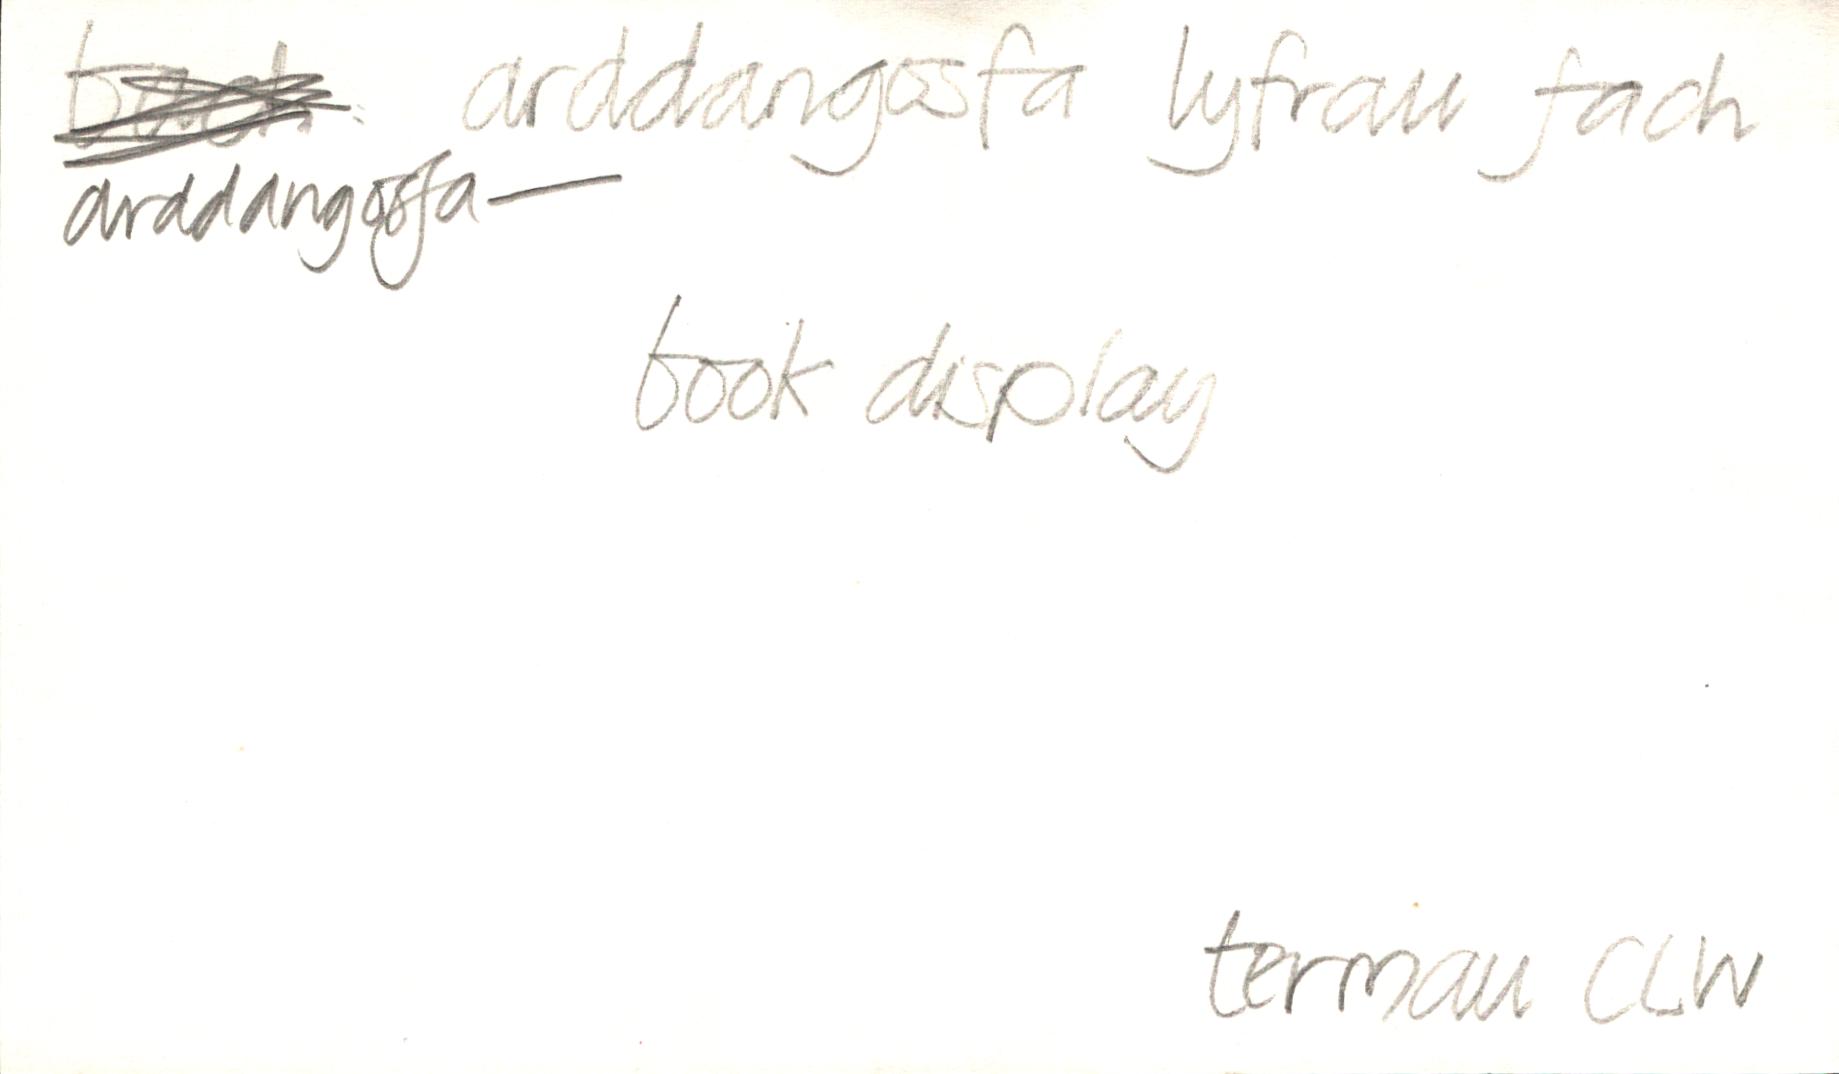 arddangosfa lyfrau fach
arddangosfa —
book display
termau CLW